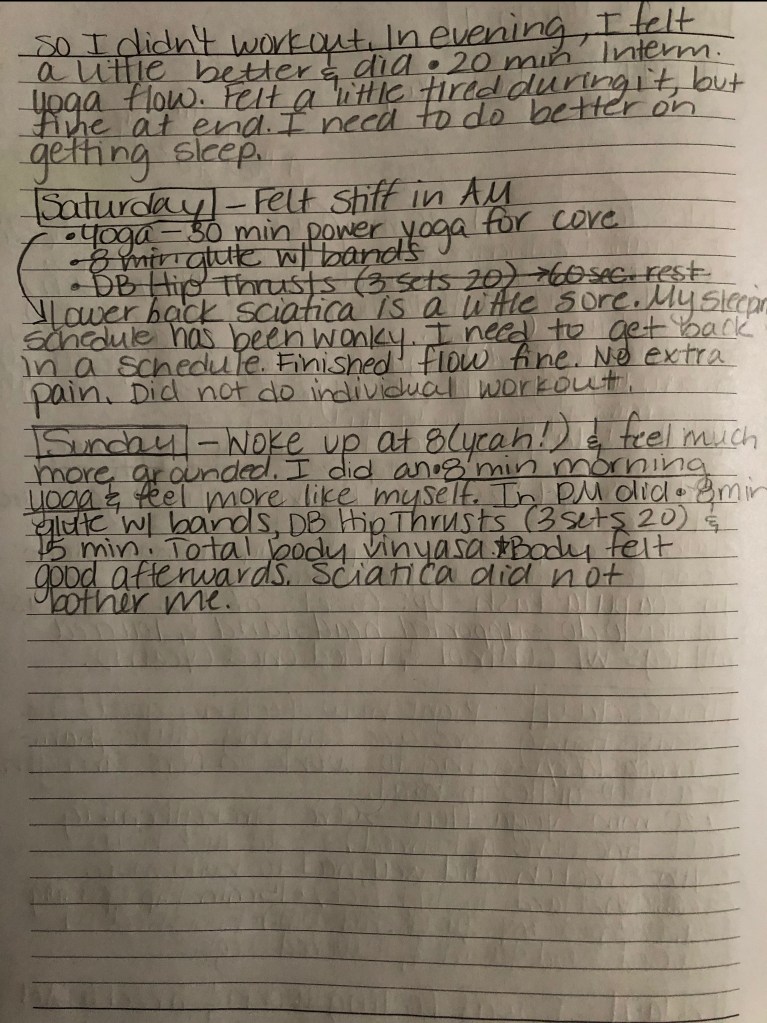 so I didn't workout. In evening, I felt
a little better & did • 20 min Interm.
yoga flow. Felt a little tired during it, but
fine at end. I need to do better on
getting sleep.
Saturday - Felt stiff in AM
• Yoga - 30 min power yoga for core
• 8 min glute w/ bands
• DB Hip Thrusts (3 sets 20) → 60 sec. rest
Lower back sciatica is a little sore. My sleepin
schedule has been wonky. I need to get back
in a schedule. Finished flow fine. No extra
pain. Did not do individual workout.
Sunday - Woke up at 8 (yeah!) & feel much
more grounded. I did an • 8 min morning
yoga & feel more like myself. In PM did • 8 min
glute w/ bands, DB Hip Thrusts (3 sets 20) &
15 min. Total body vinyasa. *Body felt
good afterwards. Sciatica did not
bother me.